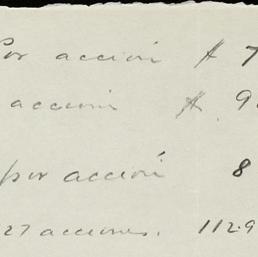 Por acción $ 7
acción $ 9
por acción 8
27 acciones. 112.9